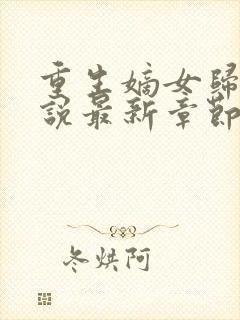 重生嫡女歸
說最新章節
冬烘阿